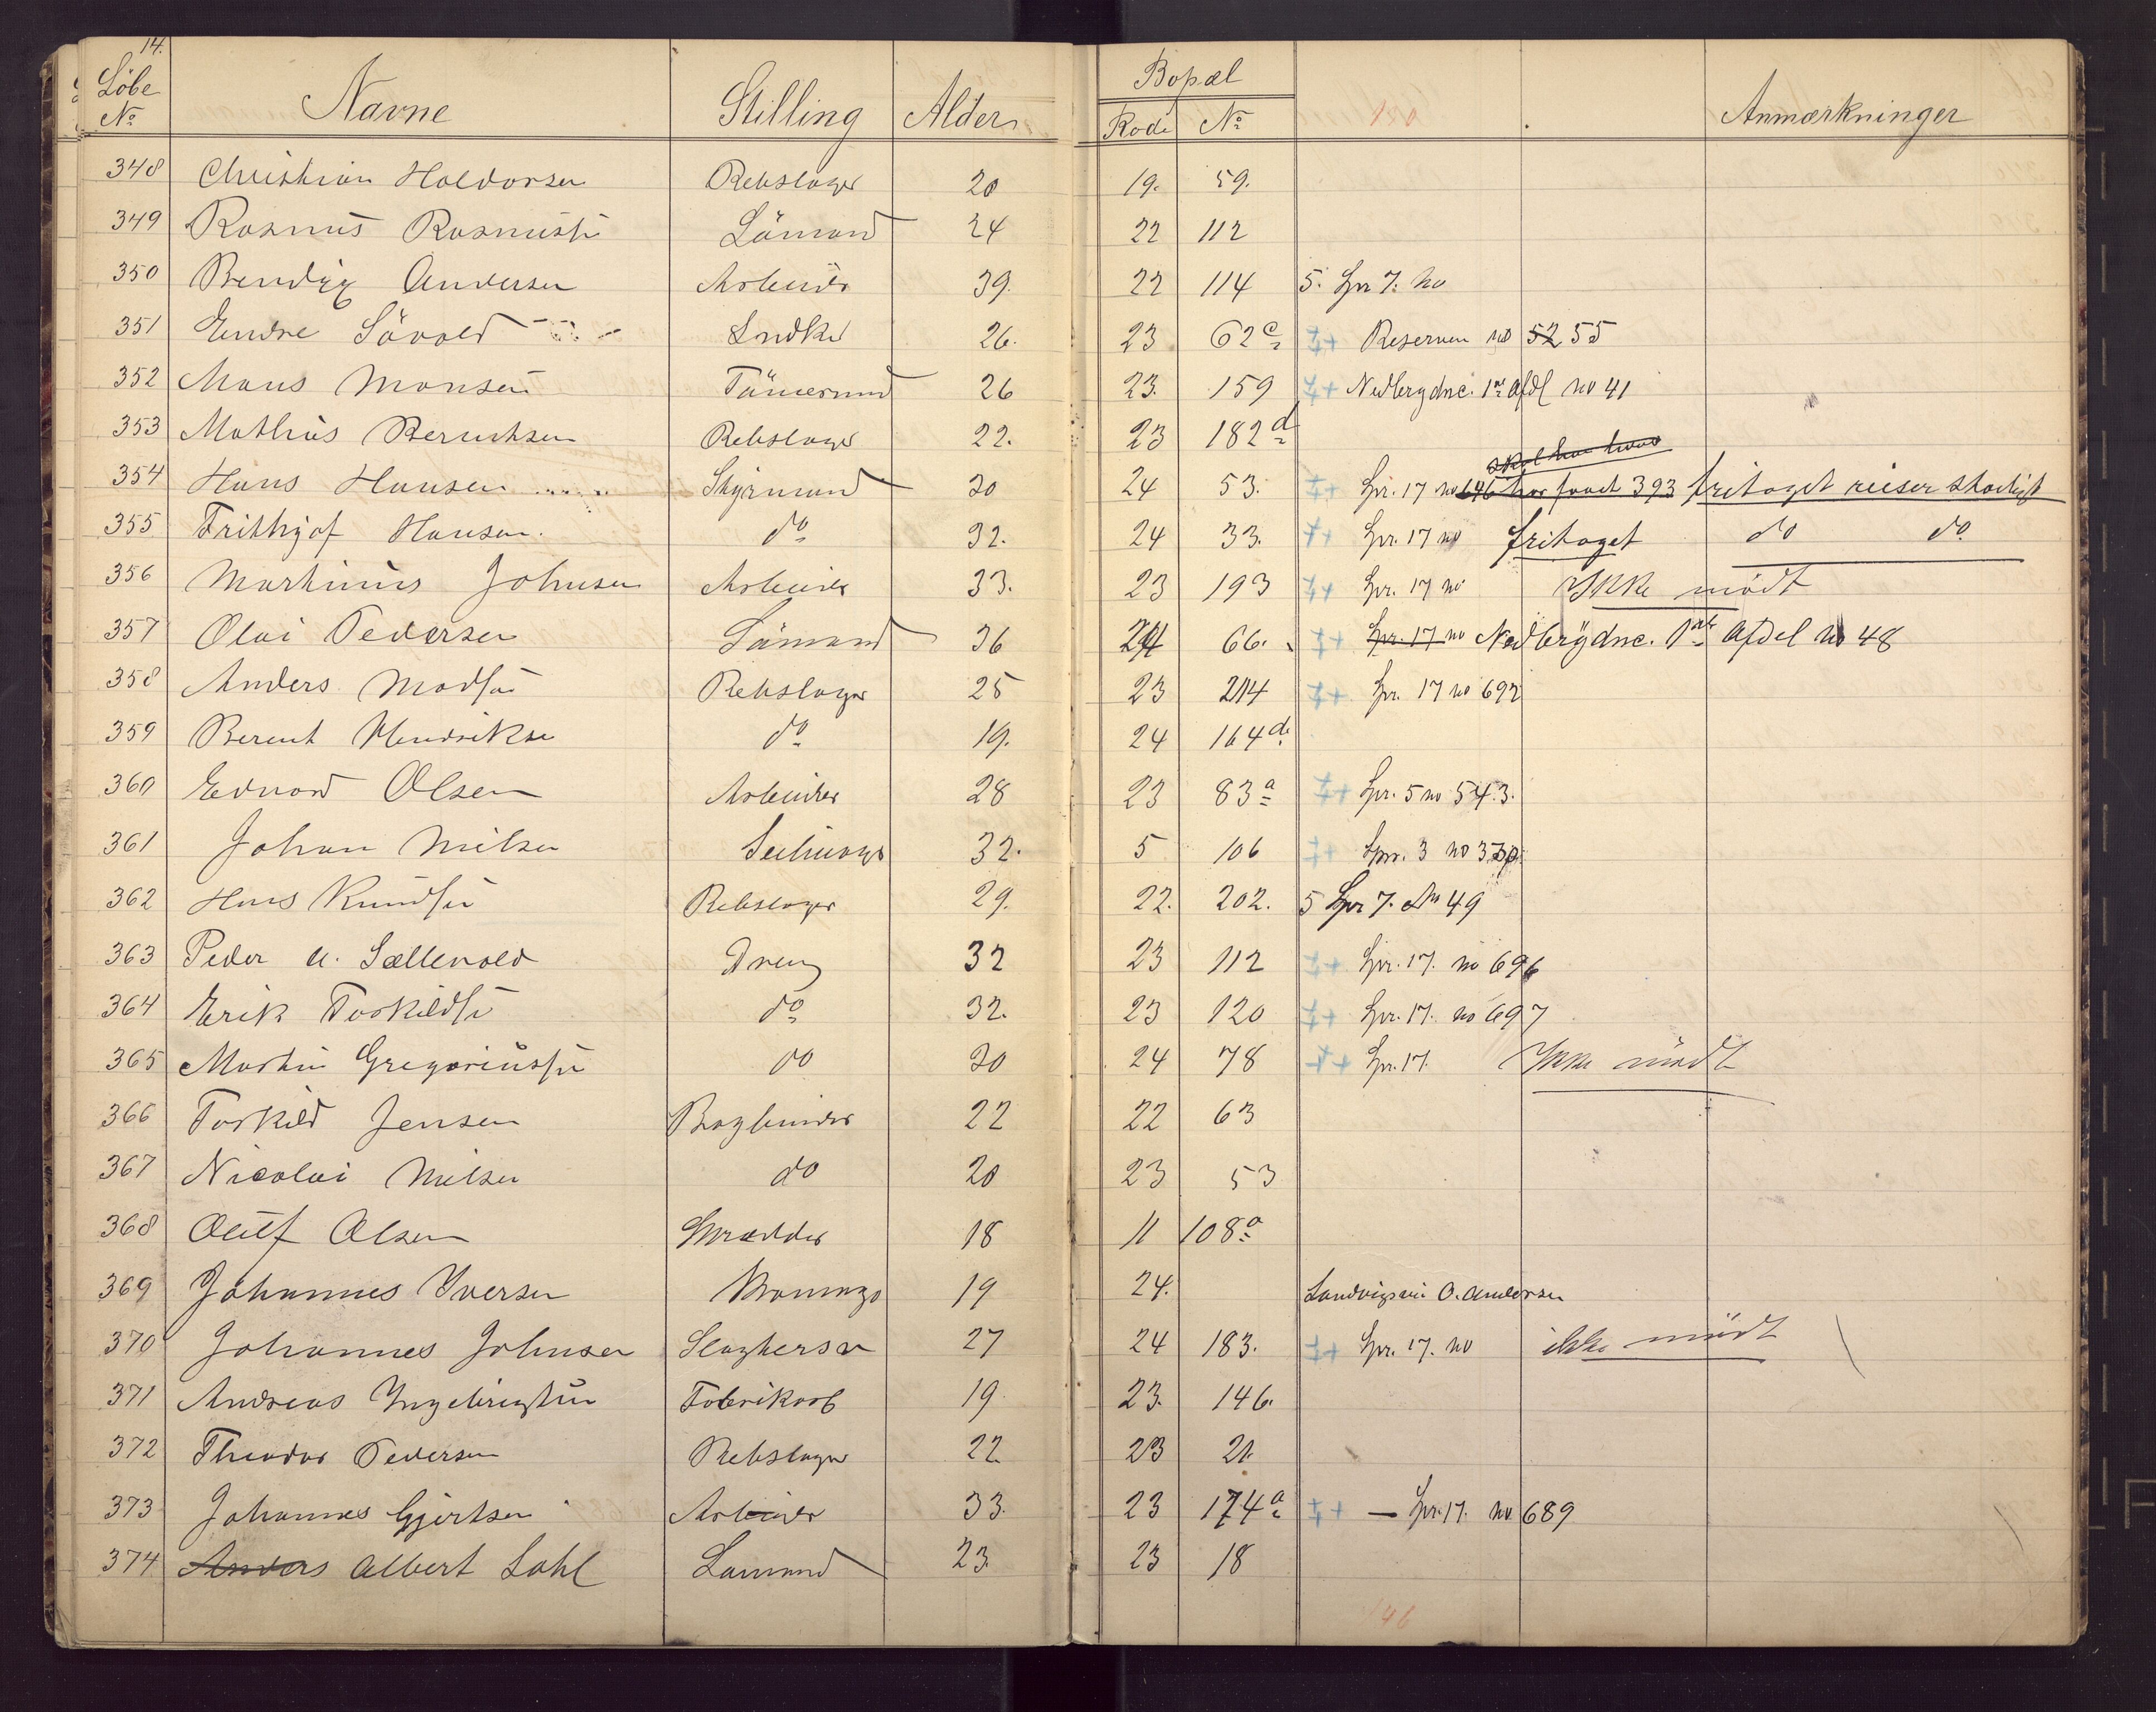 14.
Löbe No Navne Stilling Alder Bopæl Rode No 150 Anmærkninger
348 Christian Haldorsen Rebslager 20 19. 59.
349 Rasmus Rasmussen Sömand 24 22 112
350 Bendix Andersen Arbeider 39. 22 114 5. Spr 7. no
351 Endre Sövold Sndker 26. 23 62c ++ Reserven no 52 55
352 Mons Monsen Tömermd 26 23. 159 ++ Nedbrydnc. 1ste Afdl no 41
353 Mathias Berentsen Rebslager 22. 23 182d
skal han have
354 Hans Hansen Styrmand 30 24 53. ++ Spr. 17 no 646 har faaet 393 fritaget reiser stadigt
355 Frithjof Hansen. do 32. 24 33. ++ Spr. 17 no fritaget do do
356 Martinius Johnsen Arbeider 33. 23 193 ++ Spr. 17 no Ikke mödt
357 Olai Pedersen Sömand 36 24 66. ++ Spr. 17 no Nedbrydnc. 1ste Afdel no 48
358 Anders Madsen Rebslager 25 23 214 ++ Spr. 17 no 692
359 Berent Hendriksen do 19. 24 164d
360 Edvard Olsen Arbeider 28 23 83a ++ Spr. 5 no 543.
361 Johan Nilsen 32. 5 106 ++ Spr. 3 no
362 Hans Knudsen Rebslager 29. 22. 202. 5 Spr 7. No 49
363 Peder A. Sællevold Dreng 32 23 112 ++ Spr. 17. no 696
364 Erik Torkildsen do 32. 23 120 ++ Spr. 17. no 697
365 Martin Gregoriussen do 30 24 78 ++ Spr. 17. Ikke mödt
366 Torkild Jensen Bogbinder 22 22 63
367 Nicolai Nilsen do 20 23 53
368 Oluf Olsen Skrædder 18 11 108a
369 Johannes Iversen 19 24. Sandvigsvei O. Andersen
370 Johannes Johnsen Slagtersv 27 24 183. ++ Spr. 17. no ikke mödt
371 Andreas Ingebrigtsen Fabrikarb 19 23. 146.
372 Theodor Pedersen Rebslager 22 23 21.
373 Johannes Gjertsen Arbeider 33. 23 174a ++ — Spr. 17. no 689
374 Anders Albert Dahl Sömand 23. 23 18
146